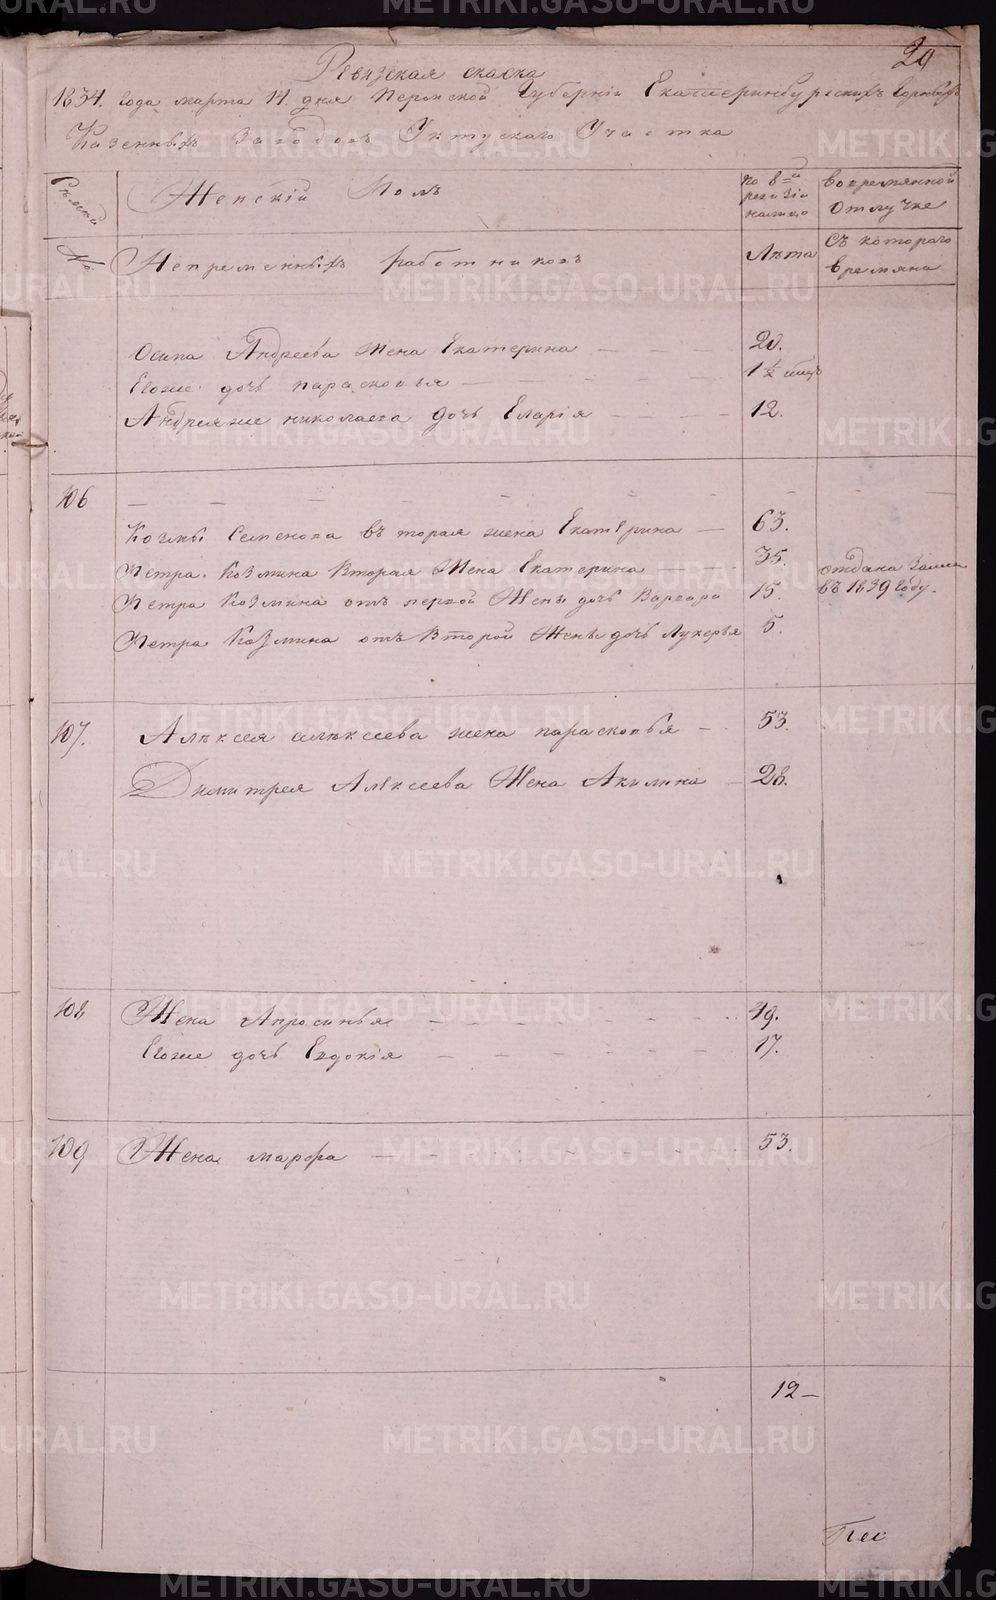 29
Ревизская скаска
1834. года марта 14 дня Пермской Губернiи Екатеринбургскихъ Горныхъ
Казенныхъ Заводовъ Уктускаго Участка
Женскiй Полъ
по 8=й ревизiи
вовремянной отлучке
№
Непременныхъ работниковъ
Лѣта
съ котораго времяни
Осипа Андреева Жена Екатерина — 20.
Егоже дочь парасковья — 1 ½ мице
Андреяже николаева дочь Еларiя — 12.
106
Козмы Семенова вторая жена Екатерина — 63.
Петра Козмина Вторая Жена Екатерина — 35.
Петра Козмина отъ первой Жены дочь Варвара 15. отдана Замуж въ 1839 Году.
Петра Козмина отъ Второй Жены дочь Лукерья 5.
107. Алѣксея алѣксеева жена парасковья — 53.
Димитрея Алѣксеева Жена Акилина — 28.
108 Жена Апросинья — 49.
Егоже дочь Евдокiя — 17.
109 Жена марфа — 53.
12 —
METRIKI.GASO-URAL.RU